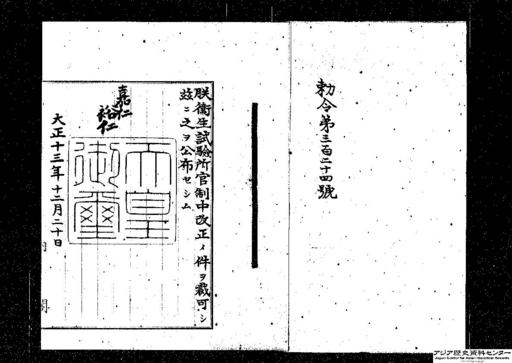 勅令第三百二十四號
朕衞生試驗所官制中改正ノ件ヲ裁可シ
玆ニ之ヲ公布セシム
嘉仁
裕仁
天皇
御璽
大正十三年十二月二十日
アジア歴史資料センター
Japan Center for Asian Historical Records